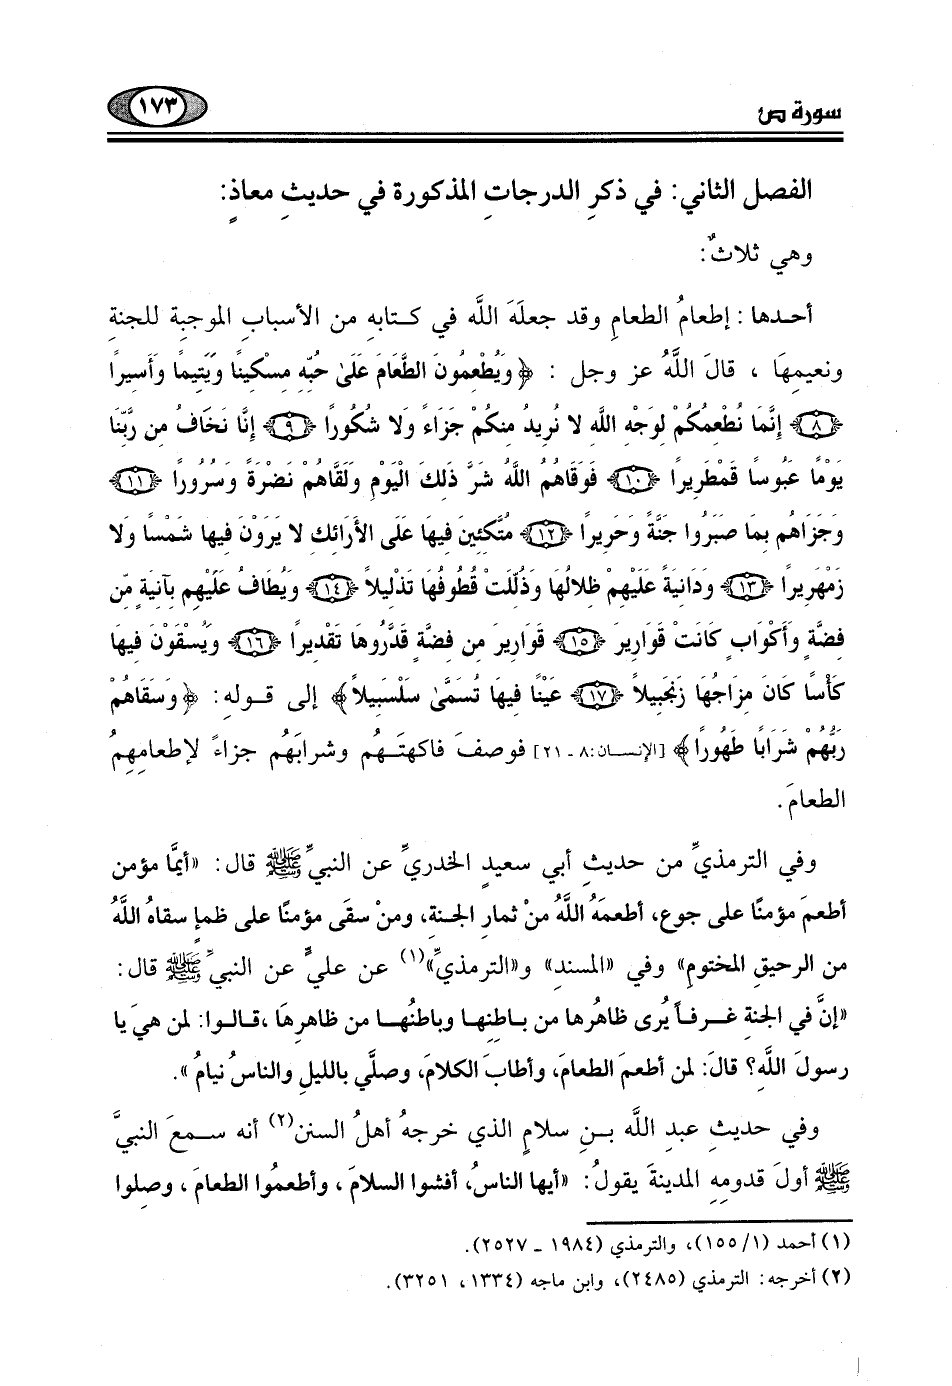 سورة ص
١٧٣
الفصل الثاني: في ذكرِ الدرجاتِ المذكورة في حديثِ معاذٍ:
وهي ثلاثٌ:
أحدها: إطعامُ الطعامِ وقد جعلَهَ اللَّه في كتابِه من الأسبابِ الموجبةِ للجنةِ
ونعيمِهَا ، قالَ اللَّهُ عز وجل : ﴿ وَيُطْعِمُونَ الطَّعَامَ عَلَىٰ حُبِّهِ مِسْكِينًا وَيَتِيمًا وَأَسِيرًا
﴿٨﴾ إِنَّمَا نُطْعِمُكُمْ لِوَجْهِ اللَّهِ لا نُرِيدُ مِنكُمْ جَزَاءً وَلا شُكُورًا ﴿٩﴾ إِنَّا نَخَافُ مِن رَّبِّنَا
يَوْمًا عَبُوسًا قَمْطَرِيرًا ﴿١٠﴾ فَوَقَاهُمُ اللَّهُ شَرَّ ذَلِكَ الْيَوْمِ وَلَقَّاهُمْ نَضْرَةً وَسُرُورًا ﴿١١﴾
وَجَزَاهُم بِمَا صَبَرُوا جَنَّةً وَحَرِيرًا ﴿١٢﴾ مُتَّكِئِينَ فِيهَا عَلَى الأَرَائِكِ لا يَرَوْنَ فِيهَا شَمْسًا وَلا
زَمْهَرِيرًا ﴿١٣﴾ وَدَانِيَةً عَلَيْهِمْ ظِلالُهَا وَذُلِّلَتْ قُطُوفُهَا تَذْلِيلاً ﴿١٤﴾ وَيُطَافُ عَلَيْهِم بِآنِيَةٍ مِّن
فِضَّةٍ وَأَكْوَابٍ كَانَتْ قَوَارِيرَ ﴿١٥﴾ قَوَارِيرَ مِن فِضَّةٍ قَدَّرُوهَا تَقْدِيرًا ﴿١٦﴾ وَيُسْقَوْنَ فِيهَا
كَأْسًا كَانَ مِزَاجُهَا زَنجَبِيلاً ﴿١٧﴾ عَيْنًا فِيهَا تُسَمَّىٰ سَلْسَبِيلاً﴾ إلى قوله: ﴿ وَسَقَاهُمْ
رَبُّهُمْ شَرَابًا طَهُورًا ﴾ [الإنسان:٨ ـ ٢١] فوصفَ فاكهتَهُم وشرابَهُم جزاءً لإطعامِهِمُ
الطعامَ.
وفي الترمذيِّ من حديثِ أبي سعيدٍ الخدريِّ عن النبيِّ ﷺ قال: «أيمَّا مؤمن
أطعمَ مؤمنًا على جوع، أطعمَهُ اللَّهُ منْ ثمارِ الجنة، ومنْ سقَى مؤمنًا على ظمإٍ سقاهُ اللَّهُ
من الرحيقِ المختومِ» وفي «المسندِ» و«الترمذيِّ»(١) عن عليٍّ عن النبيِّ ﷺ قال:
«إنَّ في الجنةِ غرفاً يُرى ظاهُرها من باطنِها وباطنُها من ظاهرِهَا ،قالوا: لمن هيَ يا
رسولَ اللَّهِ؟ قالَ: لمن أطعمَ الطعامَ، وأطابَ الكلامَ، وصلَّي بالليلِ والناسُ نيامُ ».
وفي حديثِ عبدِ اللَّه بنِ سلامٍ الذي خرجهُ أهلُ السننِ(٢) أنه سمعَ النبيَّ
ﷺ أولَ قدومِهِ المدينةَ يقولُ: «أيها الناسُ، أفشوا السلامَ ، وأطعمُوا الطعامَ ، وصلوا
(١) أحمد (١/ ١٥٥)، والترمذي (١٩٨٤ ـ ٢٥٢٧).
(٢) أخرجه: الترمذي (٢٤٨٥)، وابن ماجه (١٣٣٤ ، ٣٢٥١).